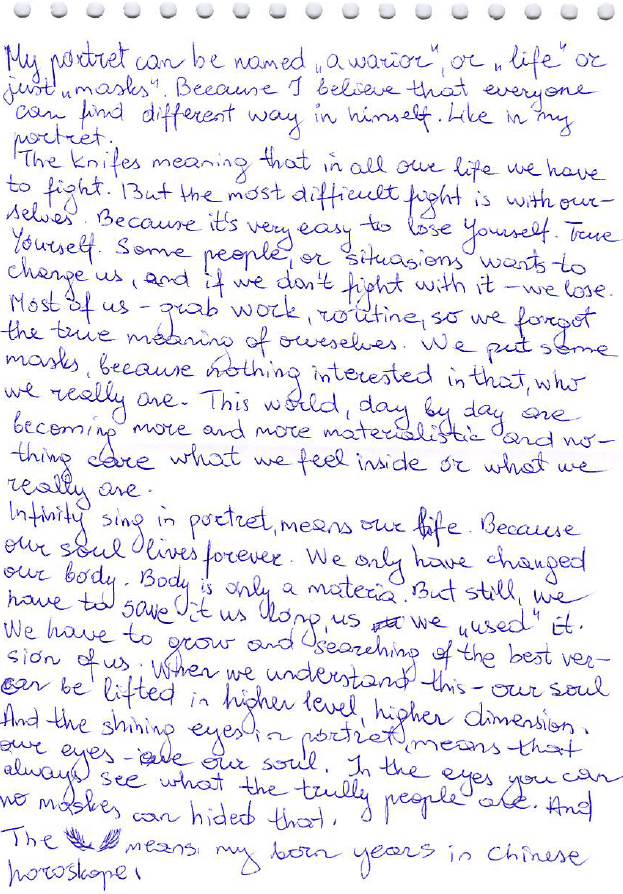 My portret can be named „a warior", or „life" or
just „masks". Because I believe that everyone
can find different way in himself. Like in my
portret.
The knifes meaning that in all our life we have
to fight. But the most difficult fight is with our-
selves. Because it's very easy to lose Yourself. True
Yourself. Some people, or situasions wants to
change us, and if we don't fight with it - we lose.
Most of us - grab work, routine, so we forgot
the true meaning of ourselves. We put some
masks, because nothing interested in that, who
we really are. This world, day by day are
becoming more and more materialistic and no-
thing care what we feel inside or what we
really are.
Infinity sing in portret, means our life. Because
our soul lives forever. We only have changed
our body. Body is only a materia. But still, we
have to save it us long, us we „used" it.
We have to grow and searching of the best ver-
sion of us. When we understand this - our soul
can be lifted in higher level, higher dimension.
And the shining eyes in portret, means that
our eyes - are our soul. In the eyes you can
always see what the trully people are. And
no maskes can hided that.
The means my born years in chinese
horoscope.